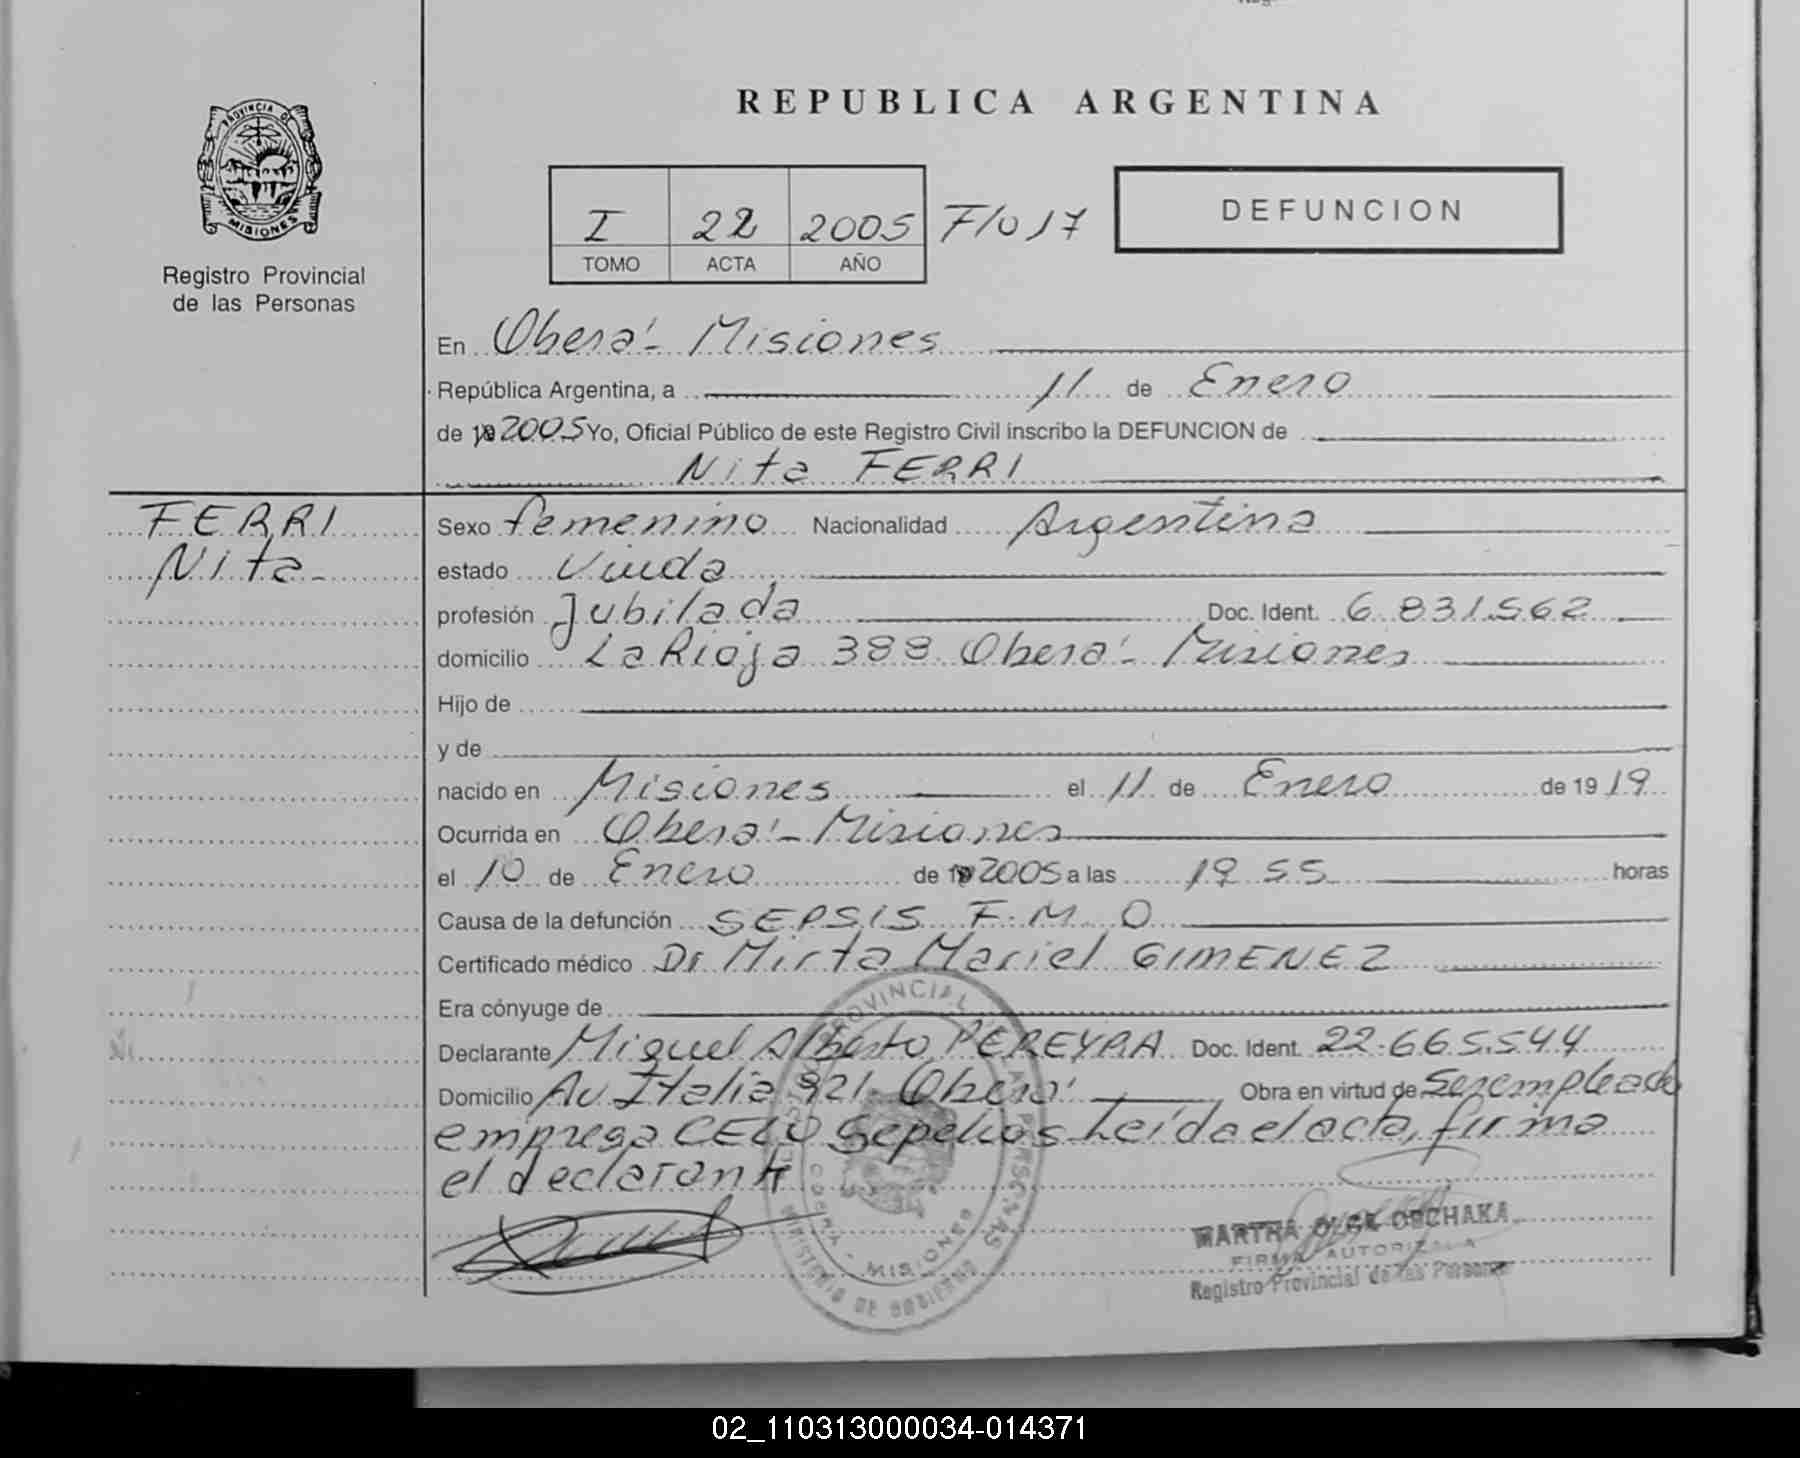 REPUBLICA ARGENTINA
PROVINCIA DE MISIONES
Registro Provincial
de las Personas
I 22 2005 F/o 17
TOMO ACTA AÑO
DEFUNCION
En Oberá - Misiones
República Argentina, a 11 de Enero
de 19 2005 Yo, Oficial Público de este Registro Civil inscribo la DEFUNCION de
Nita FERRI
FERRI
Nita -
Sexo femenino Nacionalidad Argentina
estado Viuda
profesión Jubilada Doc. Ident. 6.831.562
domicilio La Rioja 388 Oberá - Misiones
Hijo de
y de
nacido en Misiones el 11 de Enero de 1919
Ocurrida en Oberá - Misiones
el 10 de Enero de 19 2005 a las 19 55 horas
Causa de la defunción SEPSIS F.M.O
Certificado médico Dr Mirta Mariel GIMENEZ
Era cónyuge de
Declarante Miguel Alberto PEREYRA Doc. Ident. 22.665.544
Domicilio Av. Italia 921 Oberá Obra en virtud de Ser empleado
empresa CELO Sepelios Leída el acta, firma
el declarante
PROVINCIAL DE LAS PERSONAS
MISIONES
MINISTERIO DE GOBIERNO
MARTHA OLGA
FIRMA AUTORIZADA
Registro Provincial de las Personas
02_110313000034-014371